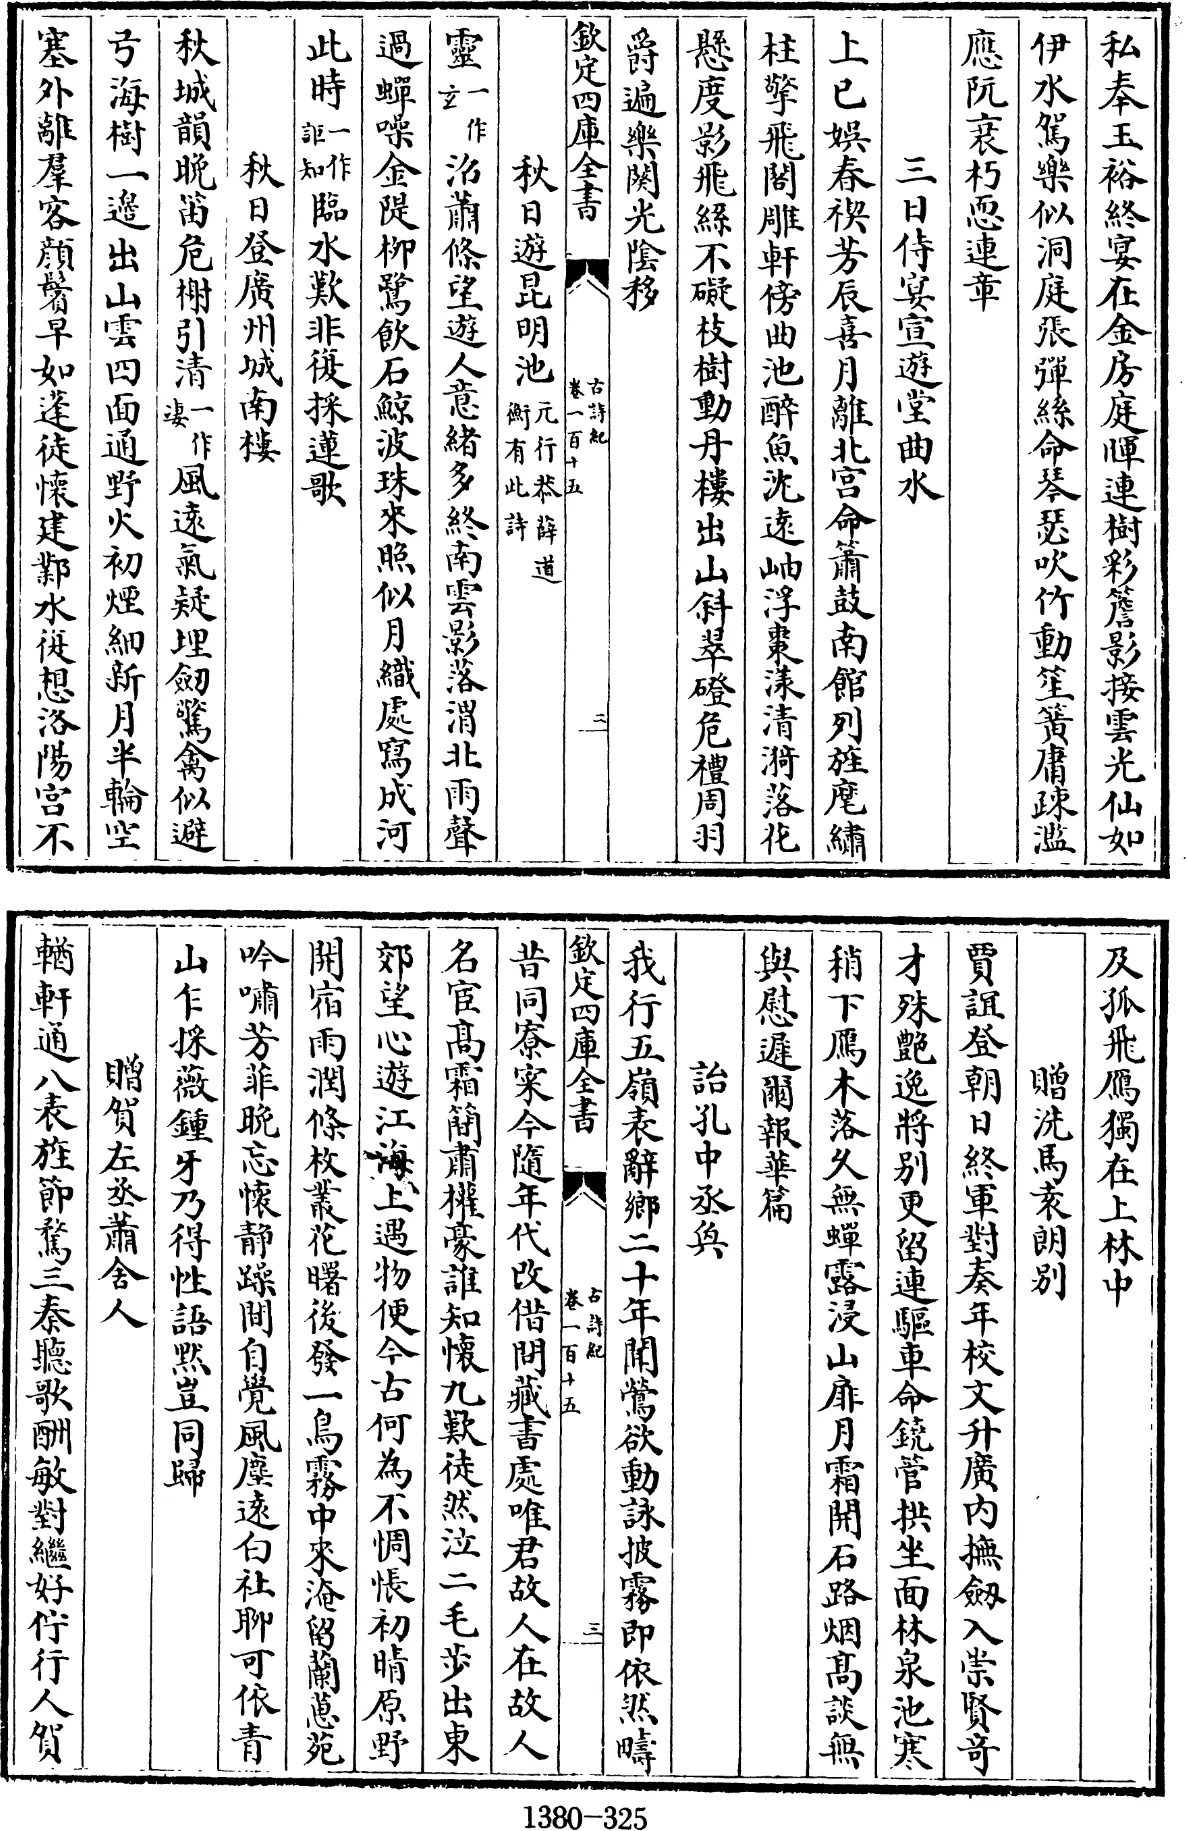 私奉玉裕終宴在金房庭暉連樹彩簷影接雲光仙如
伊水駕樂似洞庭張彈絲命琴瑟吹竹動笙簧庸疎濫
應阮衰朽恧連章
三日侍宴宣遊堂曲水
上巳娛春禊芳辰喜月離北宮命簫鼓南館列旌麾繡
柱擎飛閣雕軒傍曲池醉魚沈遠岫浮棗漾清漪落花
懸度影飛絲不礙枝樹動丹樓出山斜翠磴危禮周羽
爵遍樂闋光陰移
欽定四庫全書
古詩紀
卷一百十五
二
秋日遊昆明池元行恭薛道
衡有此詩
靈一作
玄沼蕭條望遊人意緒多終南雲影落渭北雨聲
過蟬噪金隄柳鷺飲石鯨波珠來照似月織處寫成河
此時一作
詎知臨水歎非復採蓮歌
秋日登廣州城南樓
秋城韻晚笛危榭引清一作
淒風遠氣疑埋劒驚禽似避
弓海樹一邊出山雲四面通野火初煙細新月半輪空
塞外離羣客顏鬢早如蓬徒懷建鄴水復想洛陽宮不
及孤飛鴈獨在上林中
贈洗馬袁朗別
賈誼登朝日終軍對奏年校文升廣內撫劒入崇賢奇
才殊艶逸將别更留連驅車命鐃管拱坐面林泉池寒
稍下鴈木落久無蟬露浸山扉月霜開石路烟髙談無
與慰遲爾報華篇
詒孔中丞奐
我行五嶺表辭鄉二十年聞鶯欲動詠披霧即依然疇
欽定四庫全書
古詩紀
卷一百十五
三
昔同寮寀今隨年代改借問藏書處唯君故人在故人
名宦髙霜簡肅權豪誰知懷九歎徒然泣二毛步出東
郊望心遊江海上遇物便今古何為不惆悵初晴原野
開宿雨潤條枚叢花曙後發一鳥霧中來淹留蘭蕙苑
吟嘯芳菲晚忘懷静躁間自覺風塵遠白社聊可依青
山乍採薇鍾牙乃得性語黙豈同歸
贈賀左丞蕭舍人
輶軒通八表旌節騖三秦聽歌酬敏對繼好佇行人賀
1380-325